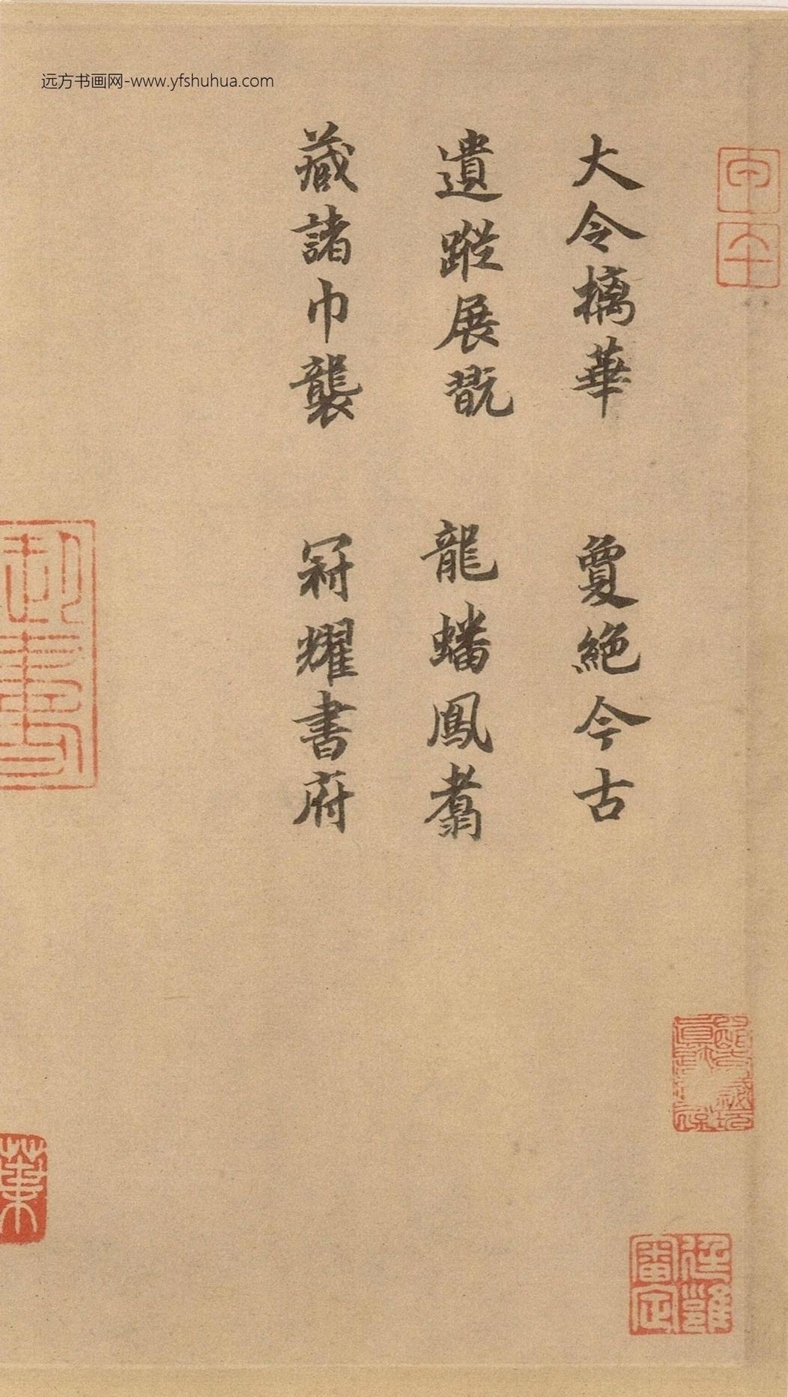 远方书画网-www.yfshuhua.com
大令摛華 敻絶今古
遺蹤展翫 龍蟠鳳翥
藏諸巾襲 冠耀書府